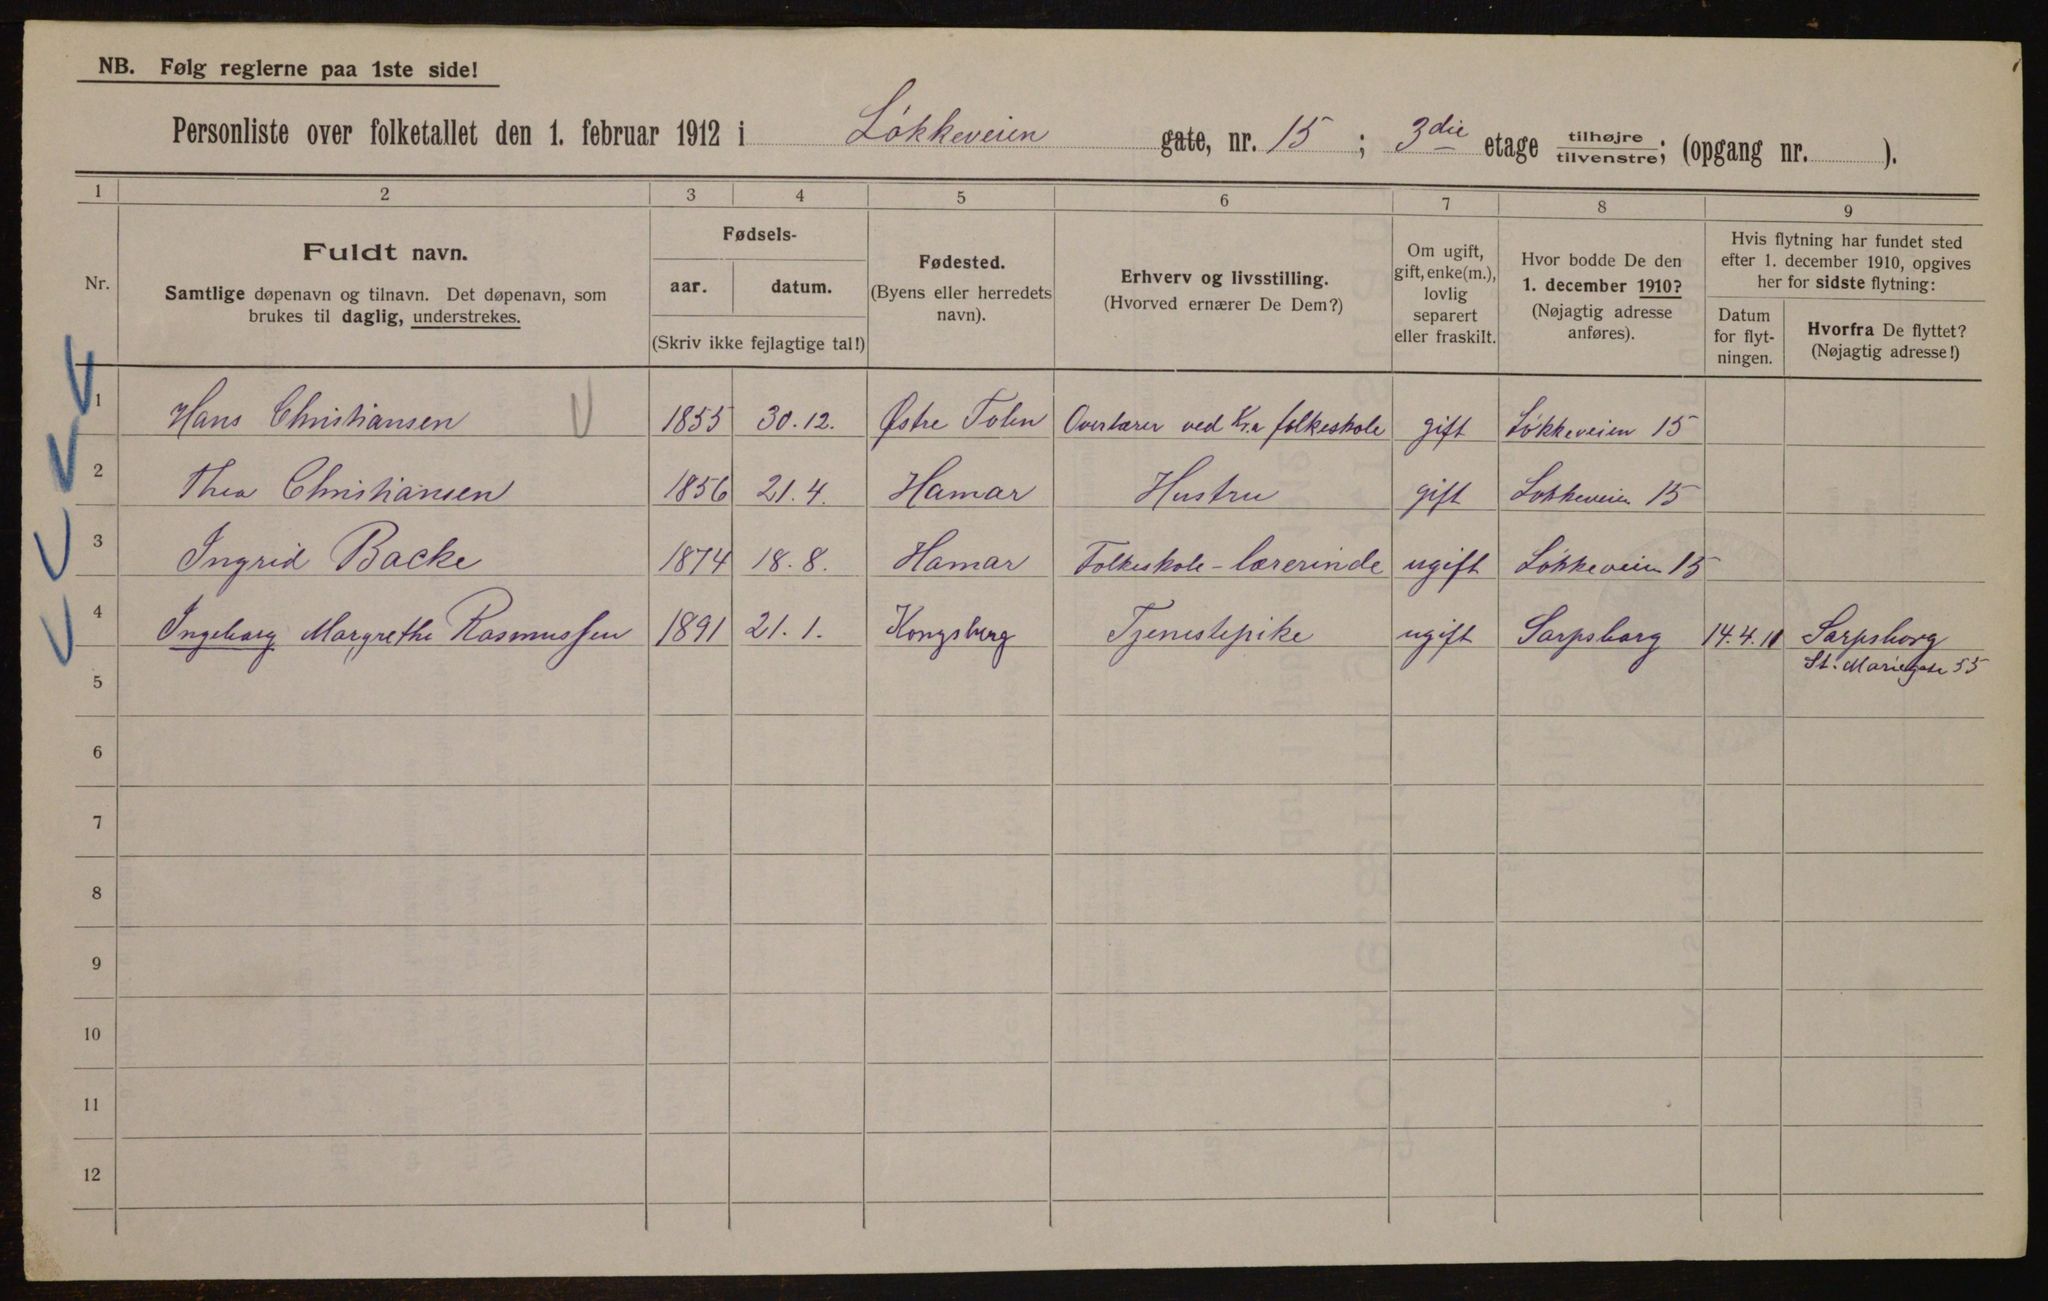 NB. Følg reglerne paa 1ste side!
Personliste over folketallet den 1. februar 1912 i Løkkeveien gate, nr. 15; 3die etage tilhøjre/tilvenstre; (opgang nr. ).
1 2 3 4 5 6 7 8 9
Nr.
Fuldt navn.
Samtlige døpenavn og tilnavn. Det døpenavn, som
brukes til daglig, understrekes.
Fødsels-
aar. datum.
(Skriv ikke fejlagtige tal!)
Fødested.
(Byens eller herredets
navn).
Erhverv og livsstilling.
(Hvorved ernærer De Dem?)
Om ugift,
gift, enke(m.),
lovlig
separert
eller fraskilt.
Hvor bodde De den
1. december 1910?
(Nøjagtig adresse
anføres).
Hvis flytning har fundet sted
efter 1. december 1910, opgives
her for sidste flytning:
Datum
for flyt-
ningen.
Hvorfra De flyttet?
(Nøjagtig adresse!)
1 Hans Christiansen 1855 30.12. Østre Toten Overlærer ved Kr.a folkeskole gift Løkkeveien 15
2 Thea Christiansen 1856 21.4. Hamar Hustru gift Løkkeveien 15
3 Ingrid Backe 1874 18.8. Hamar Folkeskole-lærerinde ugift Løkkeveien 15
4 Ingeborg Margrethe Rasmussen 1891 21.1. Kongsberg Tjenestepike ugift Sarpsborg 14.4.11 Sarpsborg
St. Mariegate 55
5
6
7
8
9
10
11
12